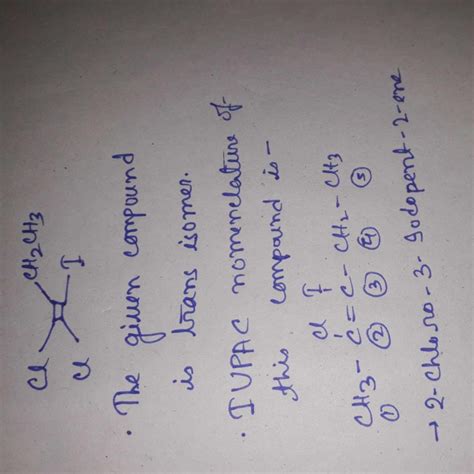 Cl CH2CH3
Cl I
• The given compound
is trans isomer.
• IUPAC nomenclature of
this compound is -
Cl I
CH3 - C = C - CH2 - CH3
① ② ③ ④ ⑤
→ 2-Chloro-3-Iodopent-2-ene